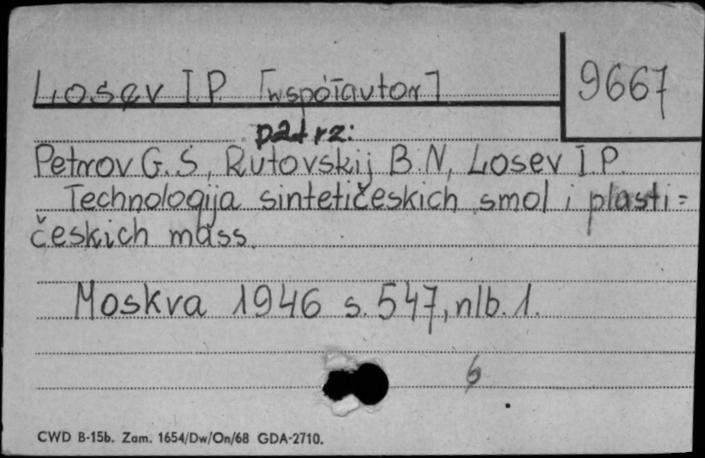 Losev I.P. [współautor]
9667
patrz:
Petrov G.S, Rutovskij B.N, Losev I.P.
Technologija sintetičeskich smol i plasti=
českich mass.
Moskva 1946 s. 547, nlb. 1.
6
CWD B-15b. Zam. 1654/Dw/On/68 GDA-2710.